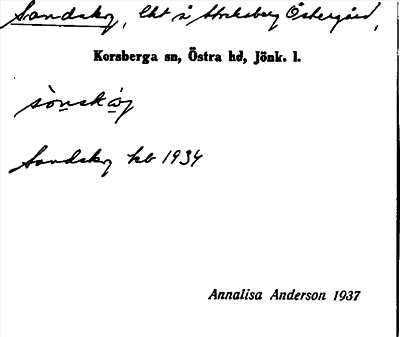 Sandskog, lht å Stocksberg Östergård,
Korsberga sn, Östra hd, Jönk. l.
sònskóg
Sandskog kb 1934
Annalisa Anderson 1937